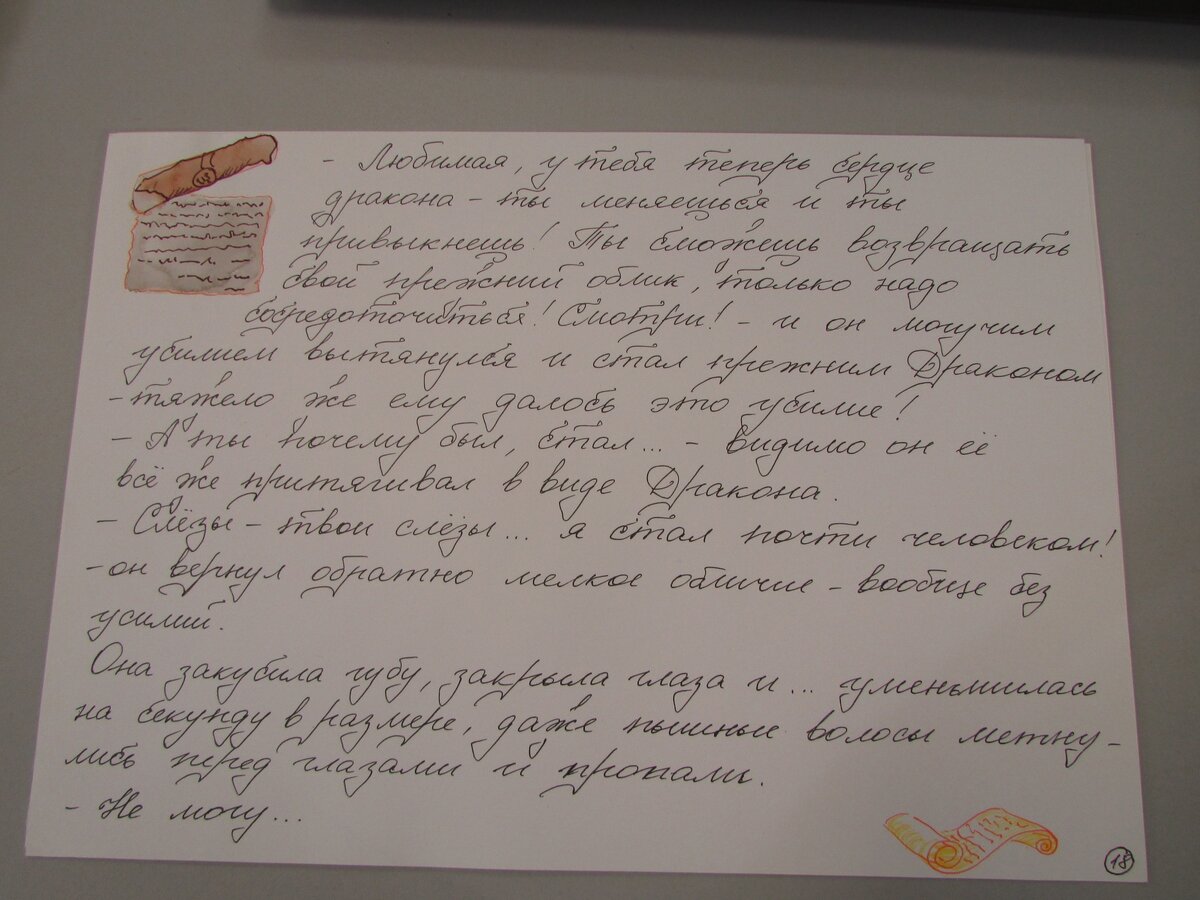 - Любимая, у тебя теперь сердце
дракона - ты меняешься и ты
привыкнешь! Ты сможешь возвращать
свой прежний облик, только надо
сосредоточиться! Смотри! - и он могучим
усилием вытянулся и стал прежним Драконом
- тяжело же ему далось это усилие!
- А ты почему был, стал... - видимо он её
всё же притягивал в виде Дракона.
- Слёзы - твои слёзы... я стал почти человеком!
- он вернул обратно мелкое обличие - вообще без
усилий.
Она закусила губу, закрыла глаза и... уменьшилась
на секунду в размере, даже пышные волосы метну-
лись перед глазами и пропали.
- Не могу...
18